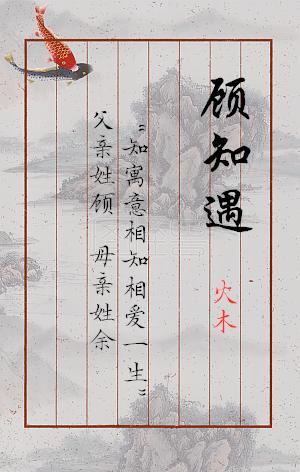 顾知遇
火木
"知寓意相知相爱一生"
父亲姓顾 母亲姓余